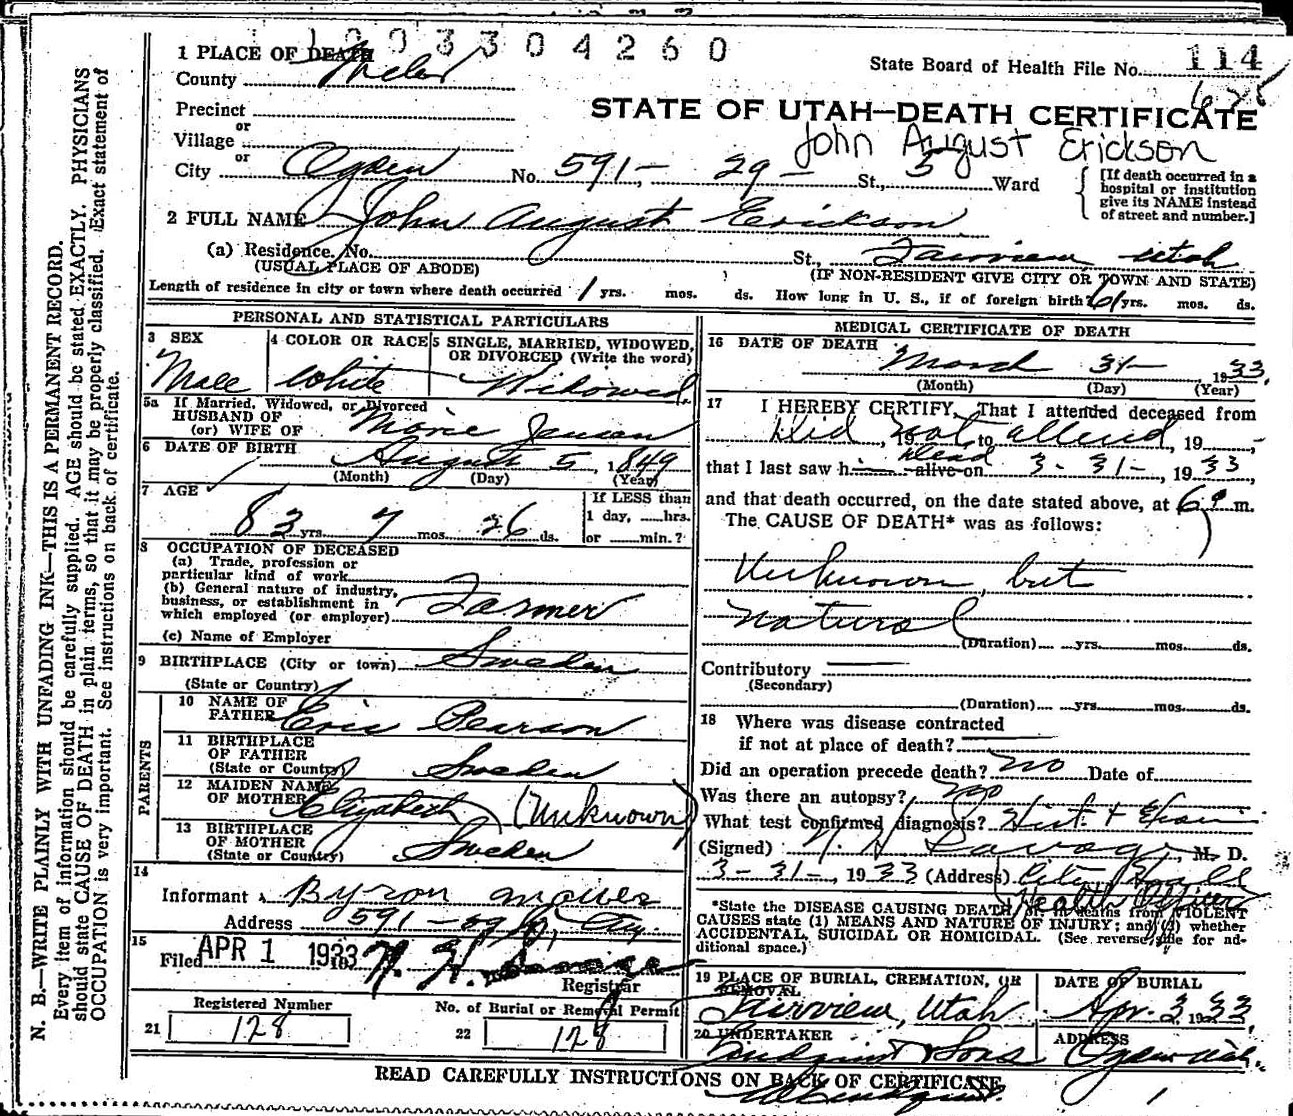 1003304260
1 PLACE OF DEATH
County Weber
State Board of Health File No. 114
Precinct
or
Village
or
City Ogden No. 591- 29 - St., 5 Ward
STATE OF UTAH—DEATH CERTIFICATE
John August Erickson
[If death occurred in a hospital or institution give its NAME instead of street and number.]
2 FULL NAME John August Erickson
(a) Residence. No. St., Fairview Utah
(USUAL PLACE OF ABODE) (IF NON-RESIDENT GIVE CITY OR TOWN AND STATE)
Length of residence in city or town where death occurred 1 yrs. mos. ds. How long in U. S., if of foreign birth? 61 yrs. mos. ds.
PERSONAL AND STATISTICAL PARTICULARS
3 SEX Male
4 COLOR OR RACE White
5 SINGLE, MARRIED, WIDOWED, OR DIVORCED (Write the word) Widowed.
5a If Married, Widowed, or Divorced
HUSBAND OF
(or) WIFE OF Marie Jensen
6 DATE OF BIRTH August 5, 1849
(Month) (Day) (Year)
7 AGE 83 yrs. 7 mos. 26 ds.
If LESS than
1 day, ......hrs.
or ......min.?
8 OCCUPATION OF DECEASED
(a) Trade, profession or
particular kind of work
(b) General nature of industry,
business, or establishment in
which employed (or employer) Farmer
(c) Name of Employer
9 BIRTHPLACE (City or town) Sweden
(State or Country)
PARENTS
10 NAME OF
FATHER Eric Pearson
11 BIRTHPLACE
OF FATHER
(State or Country) Sweden
12 MAIDEN NAME
OF MOTHER Elizabeth (Unknown)
13 BIRTHPLACE
OF MOTHER
(State or Country) Sweden
14
Informant Byron
Address 591-29 St, City
15
Filed APR 1 1933
Registrar
Registered Number
21 128
No. of Burial or Removal Permit
22 128
MEDICAL CERTIFICATE OF DEATH
16 DATE OF DEATH March 31- 1933.
(Month) (Day) (Year)
17 I HEREBY CERTIFY, That I attended deceased from
Did, 19 not to attend, 19
that I last saw h dead alive on 3-31-, 1933,
and that death occurred, on the date stated above, at 6 m.
The CAUSE OF DEATH* was as follows:
Unknown, but
Natural
(Duration) yrs. mos. ds.
Contributory
(Secondary)
(Duration) yrs. mos. ds.
18 Where was disease contracted
if not at place of death?
Did an operation precede death? no Date of
Was there an autopsy? no
What test confirmed diagnosis? Hist. +
(Signed) M. D.
3-31-, 1933 (Address) City Hall
Health Officer
*State the DISEASE CAUSING DEATH, or, in deaths from VIOLENT
CAUSES state (1) MEANS AND NATURE OF INJURY; and (2) whether
ACCIDENTAL, SUICIDAL OR HOMICIDAL. (See reverse side for ad-
ditional space.)
19 PLACE OF BURIAL, CREMATION, OR
REMOVAL
Fairview, Utah
DATE OF BURIAL
Apr. 3, 1933.
20 UNDERTAKER
Lindquist & Sons
ADDRESS
Ogden Utah.
READ CAREFULLY INSTRUCTIONS ON BACK OF CERTIFICATE.
N. B.—WRITE PLAINLY WITH UNFADING INK—THIS IS A PERMANENT RECORD.
Every item of information should be carefully supplied. AGE should be stated EXACTLY. PHYSICIANS
should state CAUSE OF DEATH in plain terms, so that it may be properly classified. Exact statement of
OCCUPATION is very important. See instructions on back of certificate.